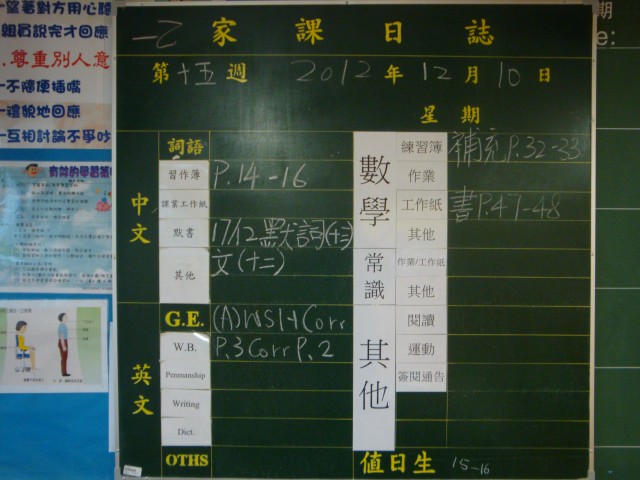 望著對方用心聽
組員說完才回應
.尊重別人意
不隨便插嘴
禮貌地回應
互相討論不爭吵
一乙 家課日誌
第十五週 2012年12月10日
星期
期
e:
中文
詞語
習作簿 P.14-16
課業工作紙
默書 17/12 默詞(十三)
其他 文(十二)
英文
G.E. (A)WS1-4 Corr
W.B. P.3 Corr P.2
Penmanship
Writing
Dict.
OTHS
數學
練習簿 補充P.32-33
作業
工作紙 書P.47-48
其他
常識
作業/工作紙
其他
其他
閱讀
運動
簽閱通告
值日生 15-16